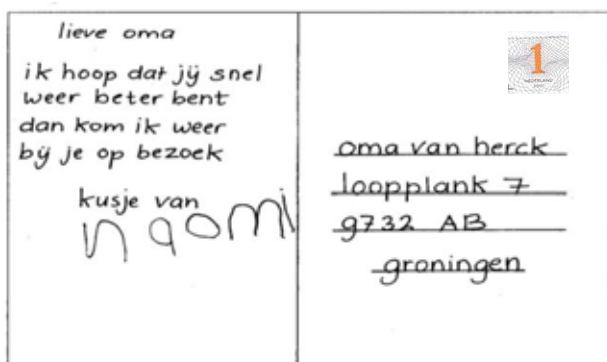 lieve oma
ik hoop dat jij snel
weer beter bent
dan kom ik weer
bij je op bezoek
kusje van
naomi
1
NEDERLAND
oma van herck
loopplank 7
9732 AB
groningen